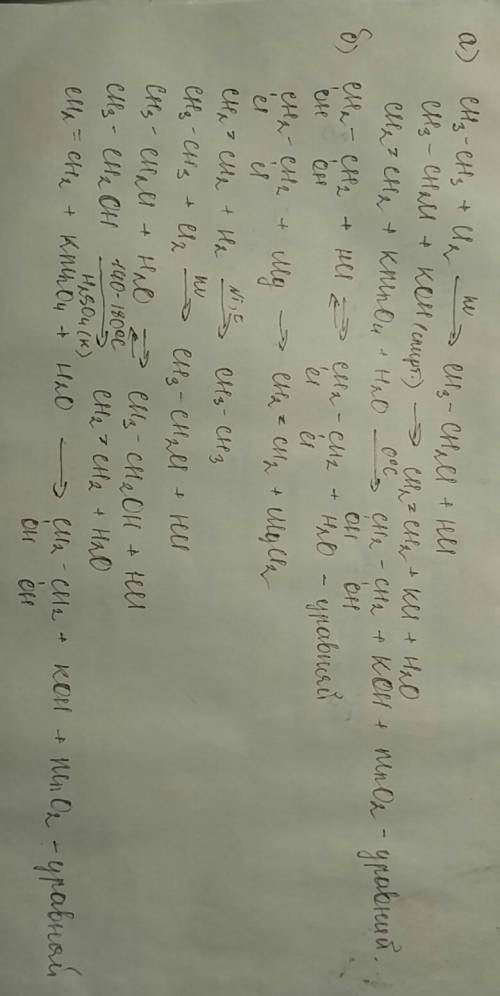 а) CH3-CH3 + Cl2 hν→ CH3-CH2Cl + HCl
CH3-CH2Cl + KOH (спирт.) → CH2=CH2 + KCl + H2O
CH2=CH2 + KMnO4 + H2O 0°C→ CH2-CH2 + KOH + MnO2 - уравний.
OH OH
б) CH2-CH2 + HCl ⇄ CH2-CH2 + H2O - уравний
OH OH Cl Cl
CH2-CH2 + Mg → CH2=CH2 + MgCl2
Cl Cl
CH2=CH2 + H2 Ni, t→ CH3-CH3
CH3-CH3 + Cl2 hν→ CH3-CH2Cl + HCl
CH3-CH2Cl + H2O ⇄ CH3-CH2OH + HCl
CH3-CH2OH 140-180°C→ CH2=CH2 + H2O
H2SO4(к)
CH2=CH2 + KMnO4 + H2O → CH2-CH2 + KOH + MnO2 - уравняй
OH OH